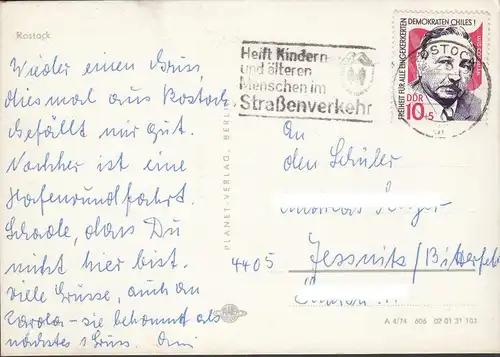 Rostock
Wieder einen Gruss,
diesmal aus Rostock
Gefällt mir gut.
Nachher ist eine
Hafenrundfahrt.
Schade, dass Du
nicht hier bist.
Viele Grüsse, auch an
Carola - sie bekommt als
nächstes 1 Gruss.
PLANET-VERLAG, BERLIN
Helft Kindern
und älteren
Menschen im
Straßenverkehr
FREIHEIT FÜR ALLE EINGEKERKERTEN
DEMOKRATEN CHILES!
LUIS CORVALAN
DDR
10+5
ROSTOCK
An
den Schüler
4405 Jessnitz/Bitterfeld
A 4/74 606 02 01 31 103